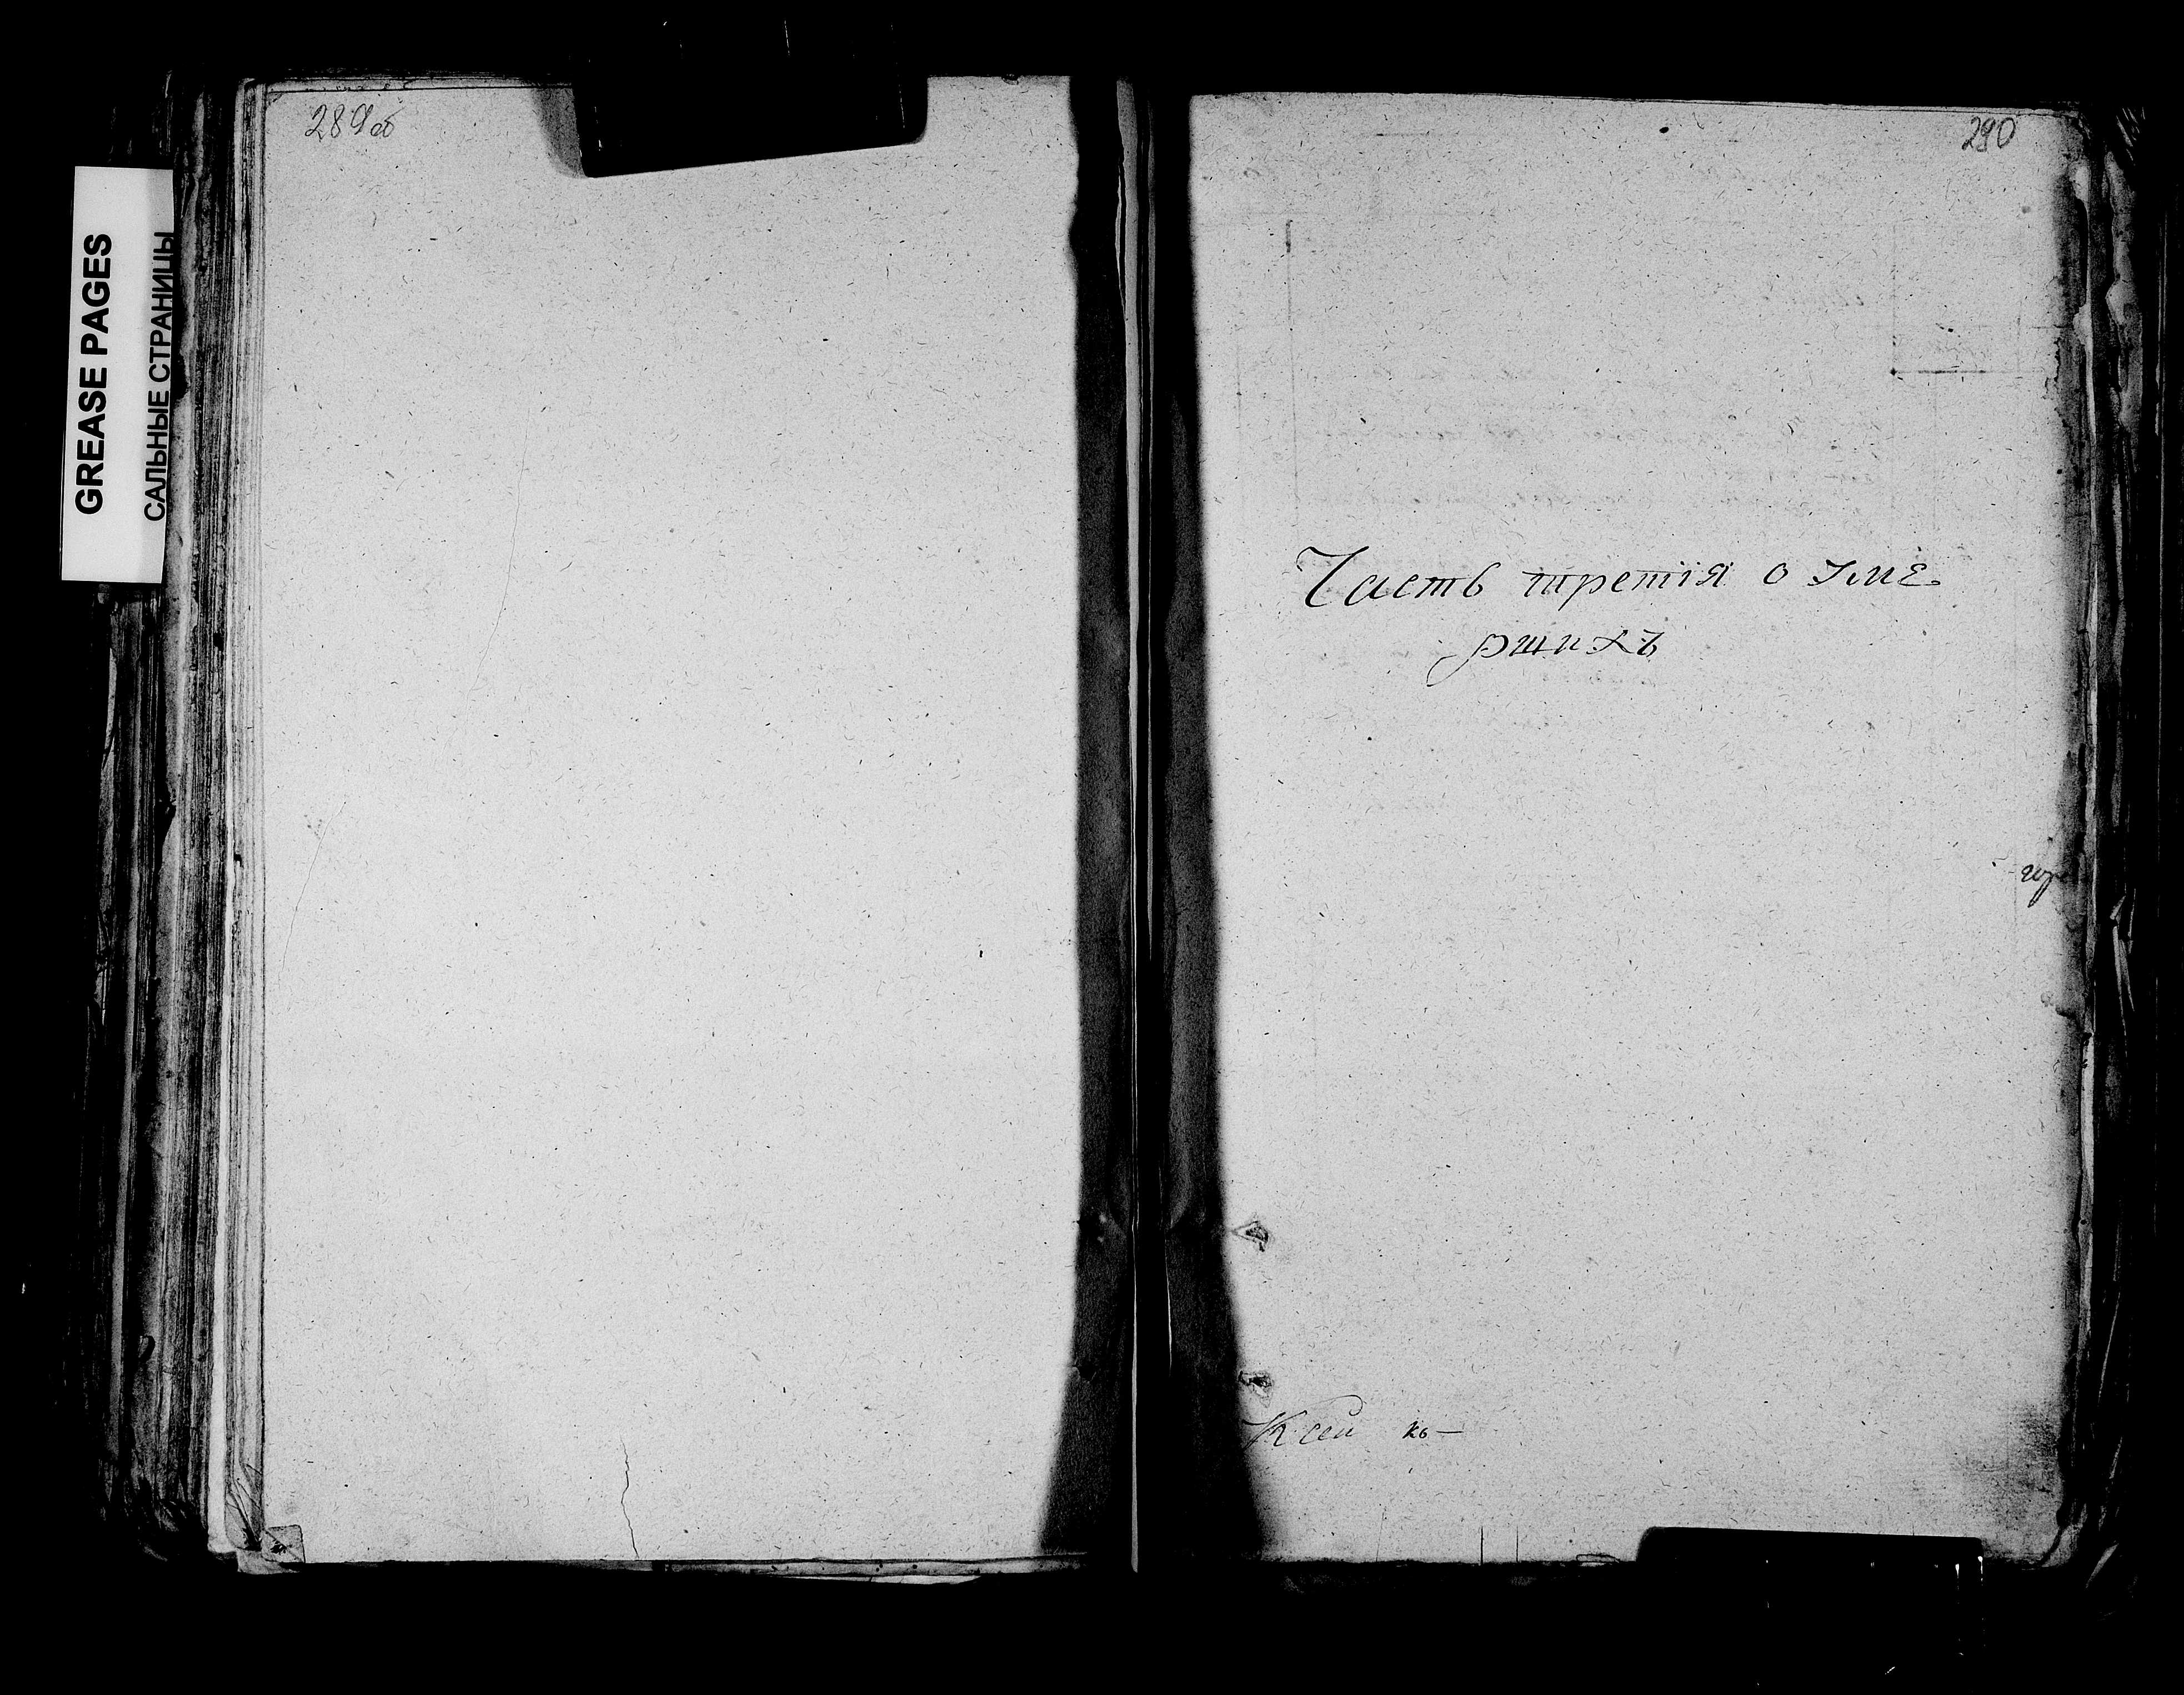 GREASE PAGES
САЛЬНЫЕ СТРАНИЦЫ
289об
290
Часть третія о уме-
ршихъ
Ксей къ —